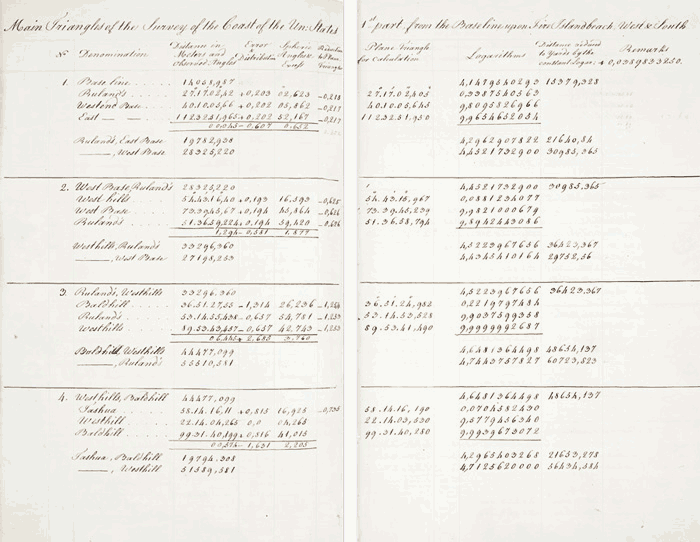 Main Triangles of the Survey of the Coast of the Un: States 1st part from the Baseline upon Fire Islandbeach, West & South
No Denomination Distance in Metres and observed Angles Error & Distribution Spheric Angles & Excess Reduction Plane Triangle for Calculation Logarithms Distance reduced to Yards by the constant Logar. + 0,0389833250. Remarks
1. Base line 14058,987 4,1479540293 15379,328
Ruland's 27.17.02,42 +0,203 02,623 -0,218 27.17.02,405 0,3387540563
Western Base 40.10.05,66 +0,202 05,862 -0,217 40.10.05,645 9,8095826966
East 112.32.51,965 +0,202 52,167 -0,217 112.32.51,950 9,9654652054
0,045 0,607 0,652
Rulands, East Base 19782,938 4,2962907822 21640,54
——, West Base 28325,220 4,4521732900 30985,365
2. West Base, Ruland's 28325,220 4,4521732900 30985,365
West hills 54.43.16,40 +0,193 16,593 -0,626 54.43.15,967 0,0881234077
West Base 73.39.45,67 +0,194 45,864 -0,626 73.39.45,239 9,9821000679
Ruland's 51.36.59,226 +0,194 59,420 -0,626 51.36.58,794 9,8942443086
1,296 0,581 1,877
Westhills, Rulands 33296,360 4,5223967656 36423,367
——, West Base 27198,253 4,4345410164 29752,56
3. Rulands, Westhills 33296,360 4,5223967656 36423,367
Baldhill 36.51.27,55 -1,314 26,236 -1,254 36.51.24,982 0,2219797484
Ruland's 53.14.55,438 -0,657 54,781 -1,253 53.14.53,528 9,9037599358
Westhills 89.53.43,457 -0,657 42,743 -1,253 89.53.41,490 9,9999992687
Baldhill, Westhills 44477,099 4,6481364498 48654,137
——, Rulands 55510,581 4,7443757827 60723,523
4. Westhills, Baldhill 44477,099 4,6481364498 48654,137
Tashua 58.14.16,11 +0,815 16,925 -0,735 58.14.16,190 0,0704582430
Westhill 22.14.04,265 0,0 04,265 22.14.03,530 9,5779456340
Baldhill 99.31.40,199 +0,816 41,015 99.31.40,280 9,9939673072
0,574 1,631 2,205
Tashua, Baldhill 19794,308 4,2965403268 21653,278
——, Westhill 51589,581 4,7125620000 56434,584